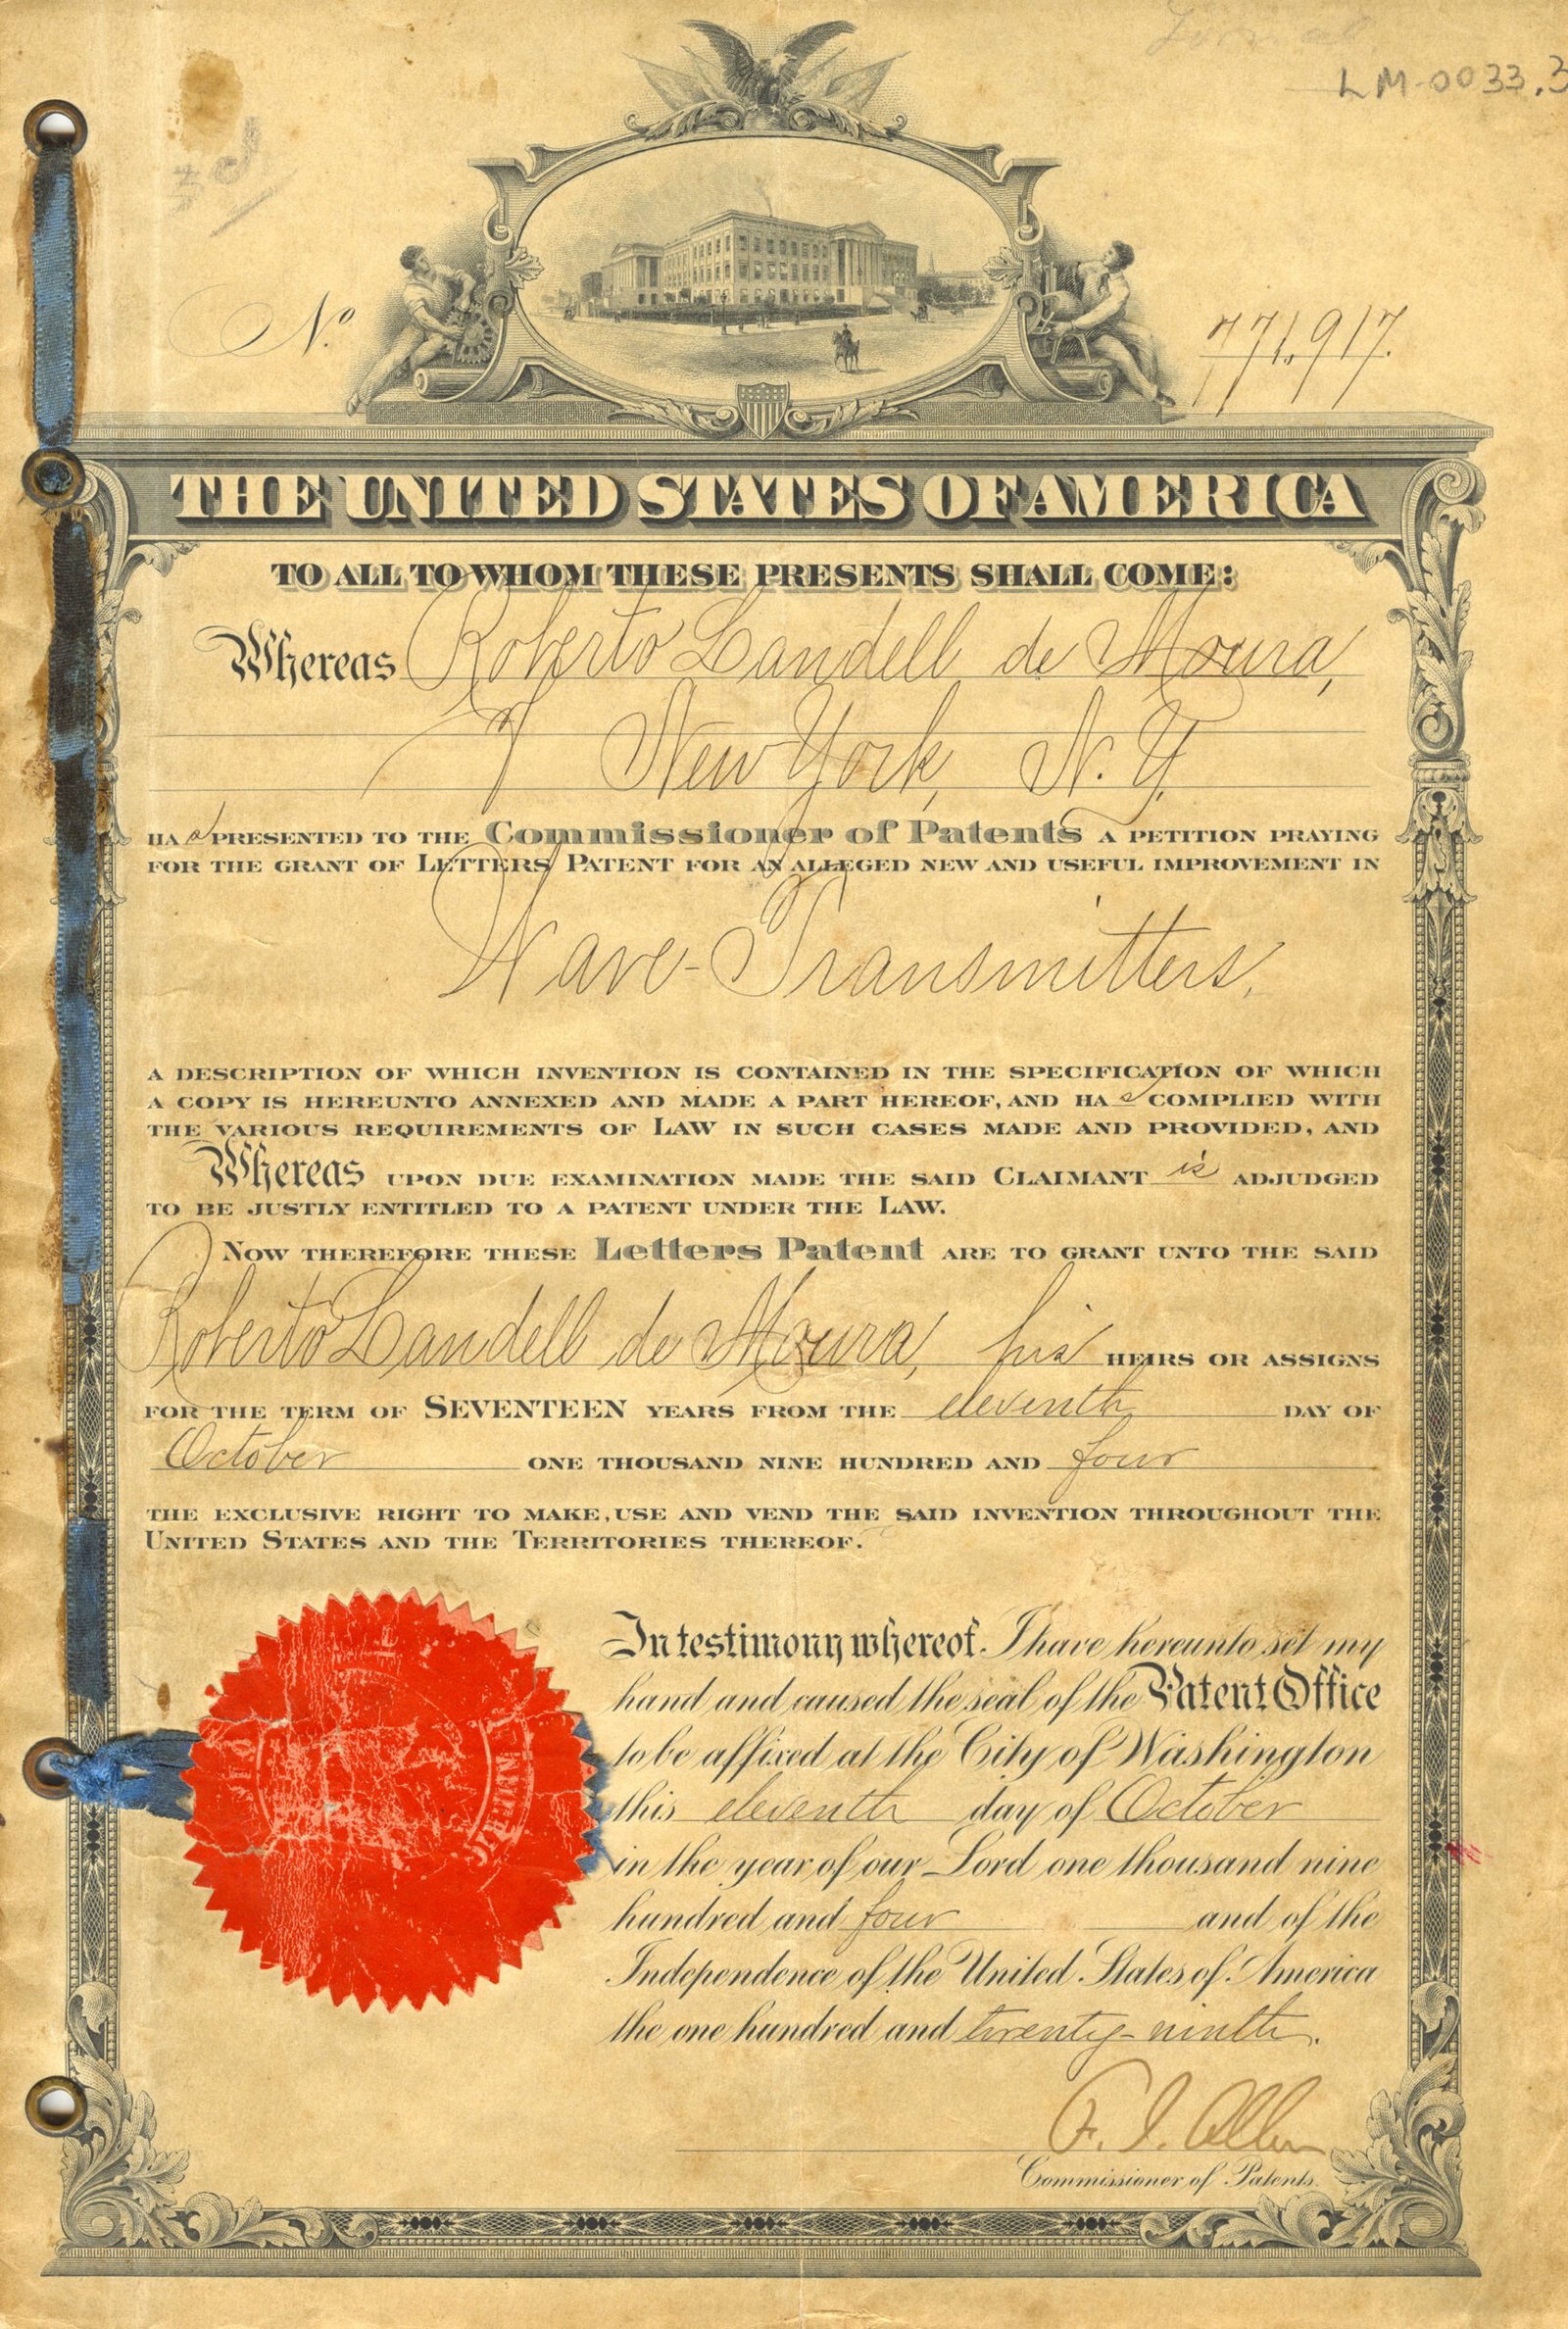 LM-0033.3
3d
No. 771,917.
THE UNITED STATES OF AMERICA
TO ALL TO WHOM THESE PRESENTS SHALL COME:
Whereas Roberto Landell de Moura,
of New York, N. Y.,
HAs PRESENTED TO THE Commissioner of Patents A PETITION PRAYING
FOR THE GRANT OF LETTERS PATENT FOR AN ALLEGED NEW AND USEFUL IMPROVEMENT IN
Wave-Transmitters,
A DESCRIPTION OF WHICH INVENTION IS CONTAINED IN THE SPECIFICATION OF WHICH
A COPY IS HEREUNTO ANNEXED AND MADE A PART HEREOF, AND HAs COMPLIED WITH
THE VARIOUS REQUIREMENTS OF LAW IN SUCH CASES MADE AND PROVIDED, AND
Whereas UPON DUE EXAMINATION MADE THE SAID CLAIMANT is ADJUDGED
TO BE JUSTLY ENTITLED TO A PATENT UNDER THE LAW.
NOW THEREFORE THESE Letters Patent ARE TO GRANT UNTO THE SAID
Roberto Landell de Moura, his HEIRS OR ASSIGNS
FOR THE TERM OF SEVENTEEN YEARS FROM THE eleventh DAY OF
October ONE THOUSAND NINE HUNDRED AND four
THE EXCLUSIVE RIGHT TO MAKE, USE AND VEND THE SAID INVENTION THROUGHOUT THE
UNITED STATES AND THE TERRITORIES THEREOF.
In testimony whereof I have hereunto set my
hand and caused the seal of the Patent Office
to be affixed at the City of Washington
this eleventh day of October
in the year of our Lord one thousand nine
hundred and four and of the
Independence of the United States of America
the one hundred and twenty-ninth.
F. I. Allen
Commissioner of Patents.